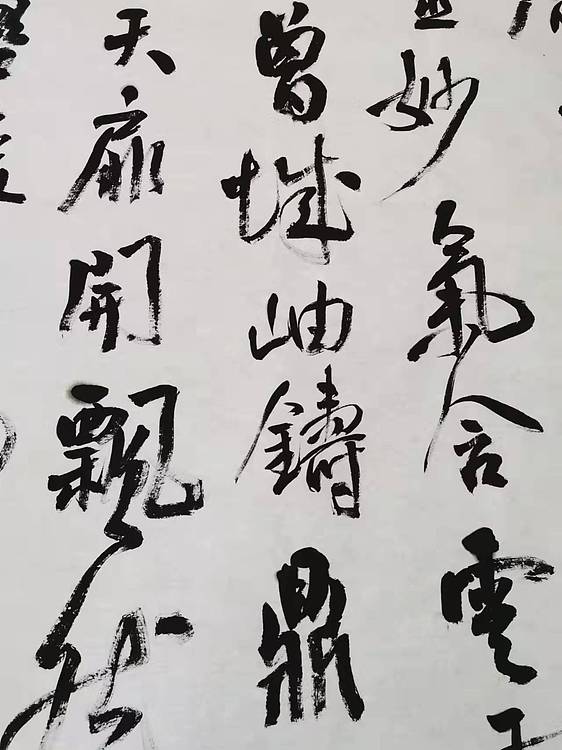 妙氣含雲
曾城岫鑄鼎
天扉開飄